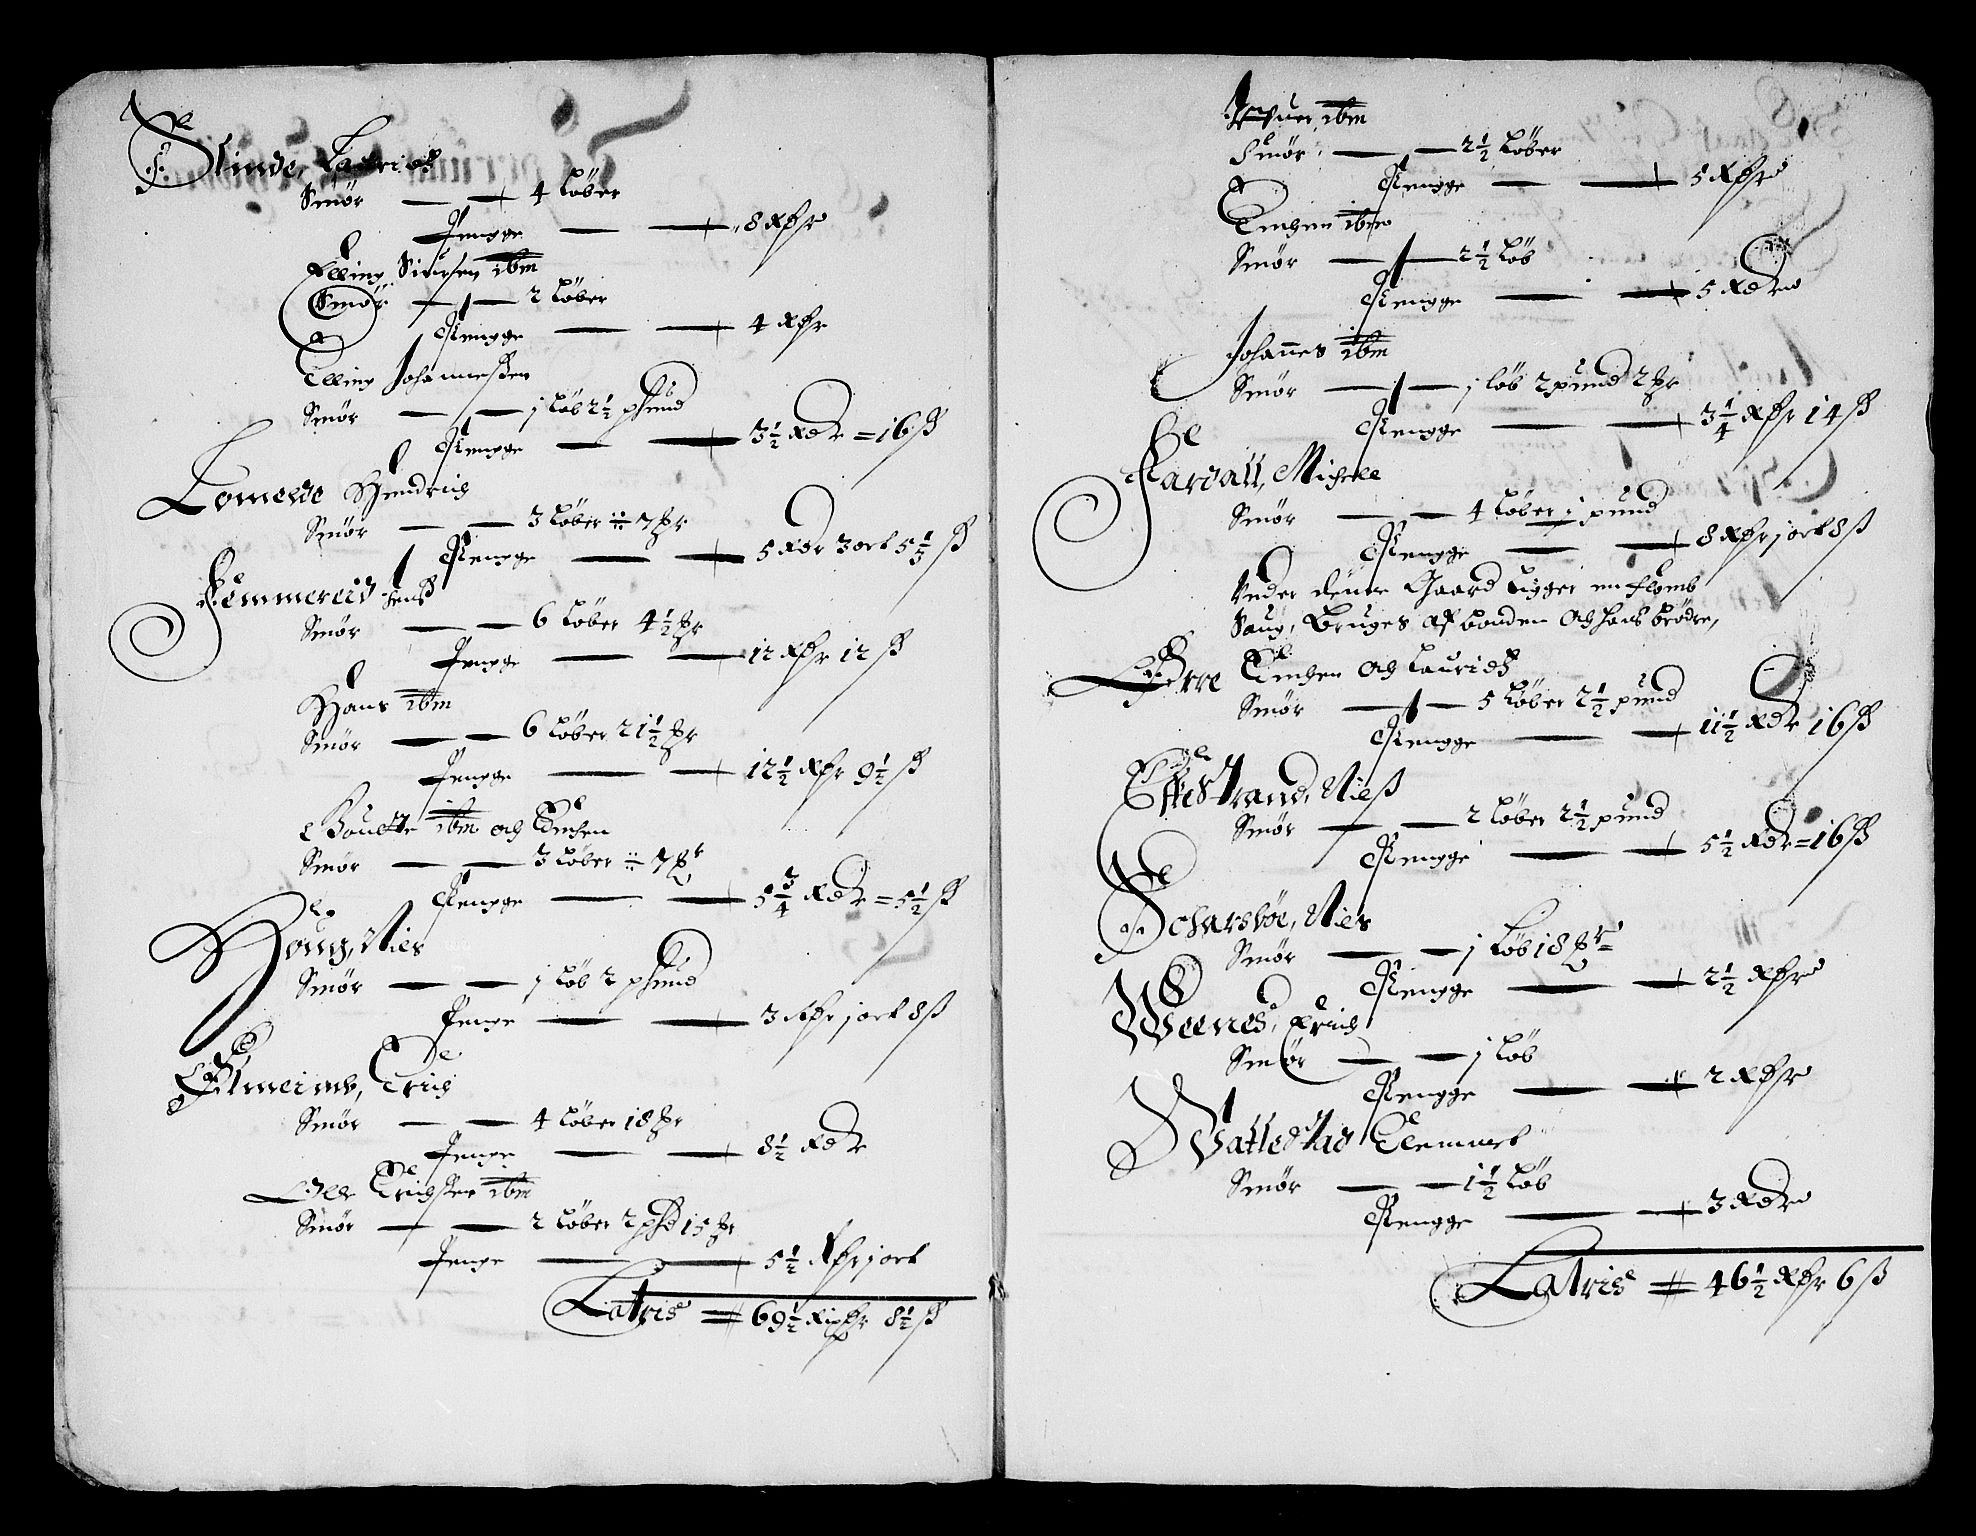 Stinde, Lauridtz
Smör — 4 Löber
Penge — 8 Rdr
Elling Siursen ibm
Smör — 2 Löber
Penge — 4 Rdr
Elling Johannessen
Smör — j Löb 2½ phund
Penge — 3½ Rdr = 16 ß
Lomelde Hendrich
Smör — 3 Löber ÷ 7 ℔r
Penge — 5 Rdr 3 ort 5⅓ ß
Femmereid Jens
Smör — 6 Löber 4½ ℔r
Penge — 12 Rdr 12 ß
Hans ibm
Smör — 6 Löber 21½ ℔r
Penge — 12½ Rdr 9½ ß
Bouette ibm och Enchen
Smör — 3 Löber ÷ 7 ℔r
Penge — 5¾ Rdr = 5½ ß
Houg, Niels
Smör — j Löb 2 phund
Penge — 3 Rdr j ort 8 ß
Elmeimb, Erich
Smör — 4 Löber 18 ℔r
Penge — 8½ Rdr
Olle Erichsen ibm
Smör — 2 Löber 2 phd 15 ℔r
Penge — 5½ Rdr j ort
Latris = 69½ Rixdr 8½ ß
Iffuer, ibm
Smör — 2½ Löber
Penge — 5 Rdr
Enchen ibm
Smör — 2½ Löb
Penge — 5 Rdr
Johannes ibm
Smör — j löb 2 pund 2 ℔r
Penge — 3¼ Rdr 14 ß
Fardall, Michell
Smör — 4 Löber j pund
Penge — 8 Rdr j ort 8 ß
Under denne Gaard Ligger en flomb
Saug, Bruges af bonden och hans brödre,
Ørre Enchen och Lauridtz
Smör — 5 Löber 2½ pund
Penge — 11½ Rdr 16 ß
Effestrand, Niels
Smör — 2 Löber 2½ pund
Penge — 5½ Rdr = 16 ß
Scharsböe, Niels
Smör — j Löb 18 ℔r
Penge — 2½ Rdr
Weenes, Erich
Smör — j Löb
Penge — 2 Rdr
Wattestad Clemmet
Smör — 1½ Löb
Penge — 3 Rdr
Latris = 46½ Rdr 6 ß